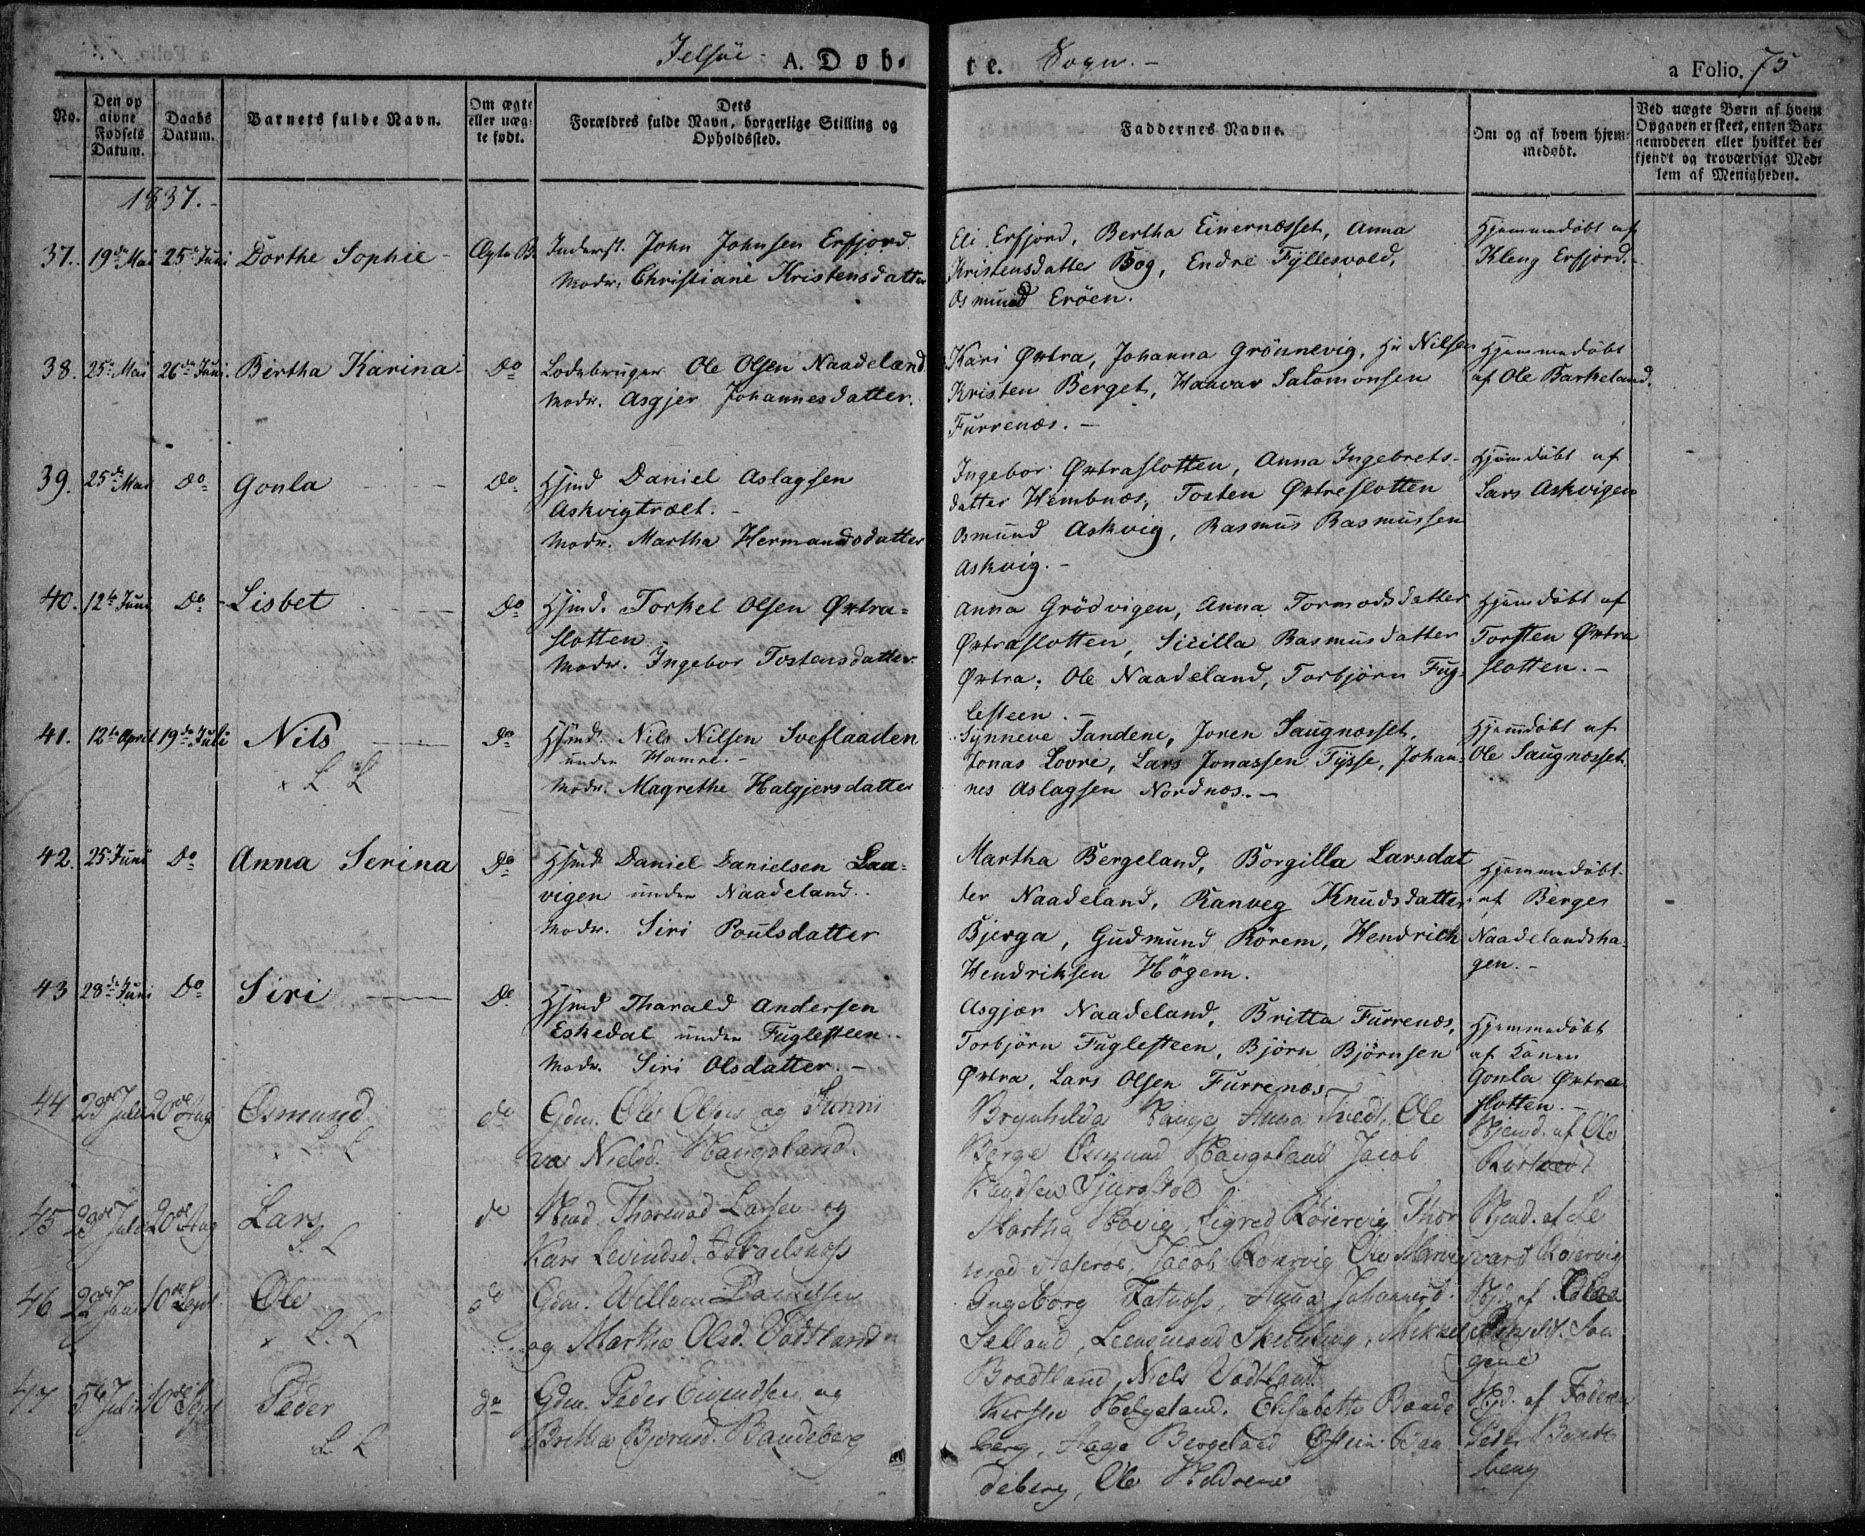 Jelsøe A. Døb-te. Sogn.-
a Folio. 75
No.
Den op
givne
Fødsels
Datum.
Daabs
Datum.
Barnets fulde Navn.
Om ægte
eller uæg-
te født.
Dets
Forældres fulde Navn, borgerlige Stilling og
Opholdssted.
Faddernes Navne.
Om og af hvem hjem-
medøbt.
Ved uægte Børn af hvem
Opgaven er skeet, enten Bar-
nemoderen eller hvilket be-
kjendt og troværdigt Med-
lem af Menigheden.
1837.-
37. 19de Mai 25de Juni Dorthe Sophie - Ægte B.
Inderst. John Johnsen Erfjord.
Modr. Christiane Kristensdatter
Eli Erfjord, Bertha Einernæsset, Anna
Kristensdatter Bog, Endre Fyllesvold,
Osmund Erøen.
Hjemmedøbt af
Kleng Erfjord.-
38. 25de Mai 26de Juni. Birtha Karina Do
Lodsbruger Ole Olsen Naadeland
Modr. Asgjer Johannesdatter.
Kari Øxtra, Johanna Grønnevig, Nilsen
Kristen Berget, Haavar Salomonsen
Furrenæs. -
Hjemmedøbt
af Ole Barkeland.
39. 25de Mai Do Gonla Do
Hsmd Daniel Aslagsen
Askvigtræet. -
Modr. Martha Hermandsdatter
Ingebor Øxtraslotten, Anna Ingebrets-
datter Hembnæs, Tosten Øxtreslotten
Osmund Askvig, Rasmus Rasmussen
Askvig. -
Hjemdøbt af
Lars Askvigen
40. 12te Juni Do Lisbet Do
Hsmd. Torkel Olsen Øxtra-
slotten
Modr. Ingebor Tostensdatter.
Anna Grødvigen, Anna Tormodsdatter
Øxtraslotten, Sicilla Rasmusdatter
Øxtra, Ole Naadeland, Torbjørn Fug-
lesteen. -
Hjemdøbt af
Torsten Øxtra
slotten. -
41. 12te April 19de Juli Nils Do
x L. L
Hsmd. Nils Nilsen Sveflaaden
under Hamre. -
Modr. Magrethe Halgjersdatter
Synneve Tandene, Joren Saugnæsset,
Jonas Lovre, Lars Jonassen Tysse, Johan-
nes Aslagsen Nordnæs. -
Hjemdøbt af
Ole Saugnæsset.
42. 25 Juni Do Anna Serina Do
Hsmd Daniel Danielsen Laa-
vigen under Naadeland.
Modr. Siri Poulsdatter
Martha Bergeland, Borgilla Larsdat
ter Naadeland, Ranveg Knudsdatter
Bjerga, Gudmund Rørem, Hendrich
Hendriksen Høgem.
Hjemmedøbt
af Berges
Naadelandsha-
gen. -
43 28de Juni Do Siri Do
Hsmd Tharald Andersen
Eskedal under Fuglesteen.
Modr. Siri Olsdatter. -
Asgjær Naadeland, Britta Furrenæs,
Torbjørn Fuglesteen, Bjørn Bjørnsen
Øxtra, Lars Olsen Furrenæs
Hjemmedøbt
af Konen
Gonla Øxtra
slotten. -
44 23de Juli 20de Aug Osmund do
x L. L
Gdm. Ole Olsen og Gunni
va Nielsd. Haugsland.
Brynhilda Hauge, Anna Tvedt, Ole
Berge Osmund Haugsland Jacob
Knudsen Djursstøl
Hjemd. af Ole
45 23de Juli 20de Aug Lars do
L. L
Hmd Thormod Larsen og
Kari Levindsd. Israelsnæss
Martha Hovig, Sigred Røiervig, Thor
mod Aaserøe, Jacob Røiervig Ole
Hjemd. af Le
vard Røiervig
46 22de Juni 10de Sept Ole do
x L. L
Gdm. Willem Danielsen
og Martha Olsd. Vadtland
Ingeborg Fatnæss, Anna Johannesd.
Selland, Leensmand, Mikkel
Bradtland, Niels Vadtland
Hjd. af
gene
47 5te Juli 10de Sept Peder do
L L
Gdm. Peder Eivindsen og
Britha Bjørnsd. Bandeberg
Kirsten Helgeland, Elisabeth Bande
berg, Aage Bergeland Østein Ban
deberg, Ole
Hjd. af Faderen
Peder Bande
berg